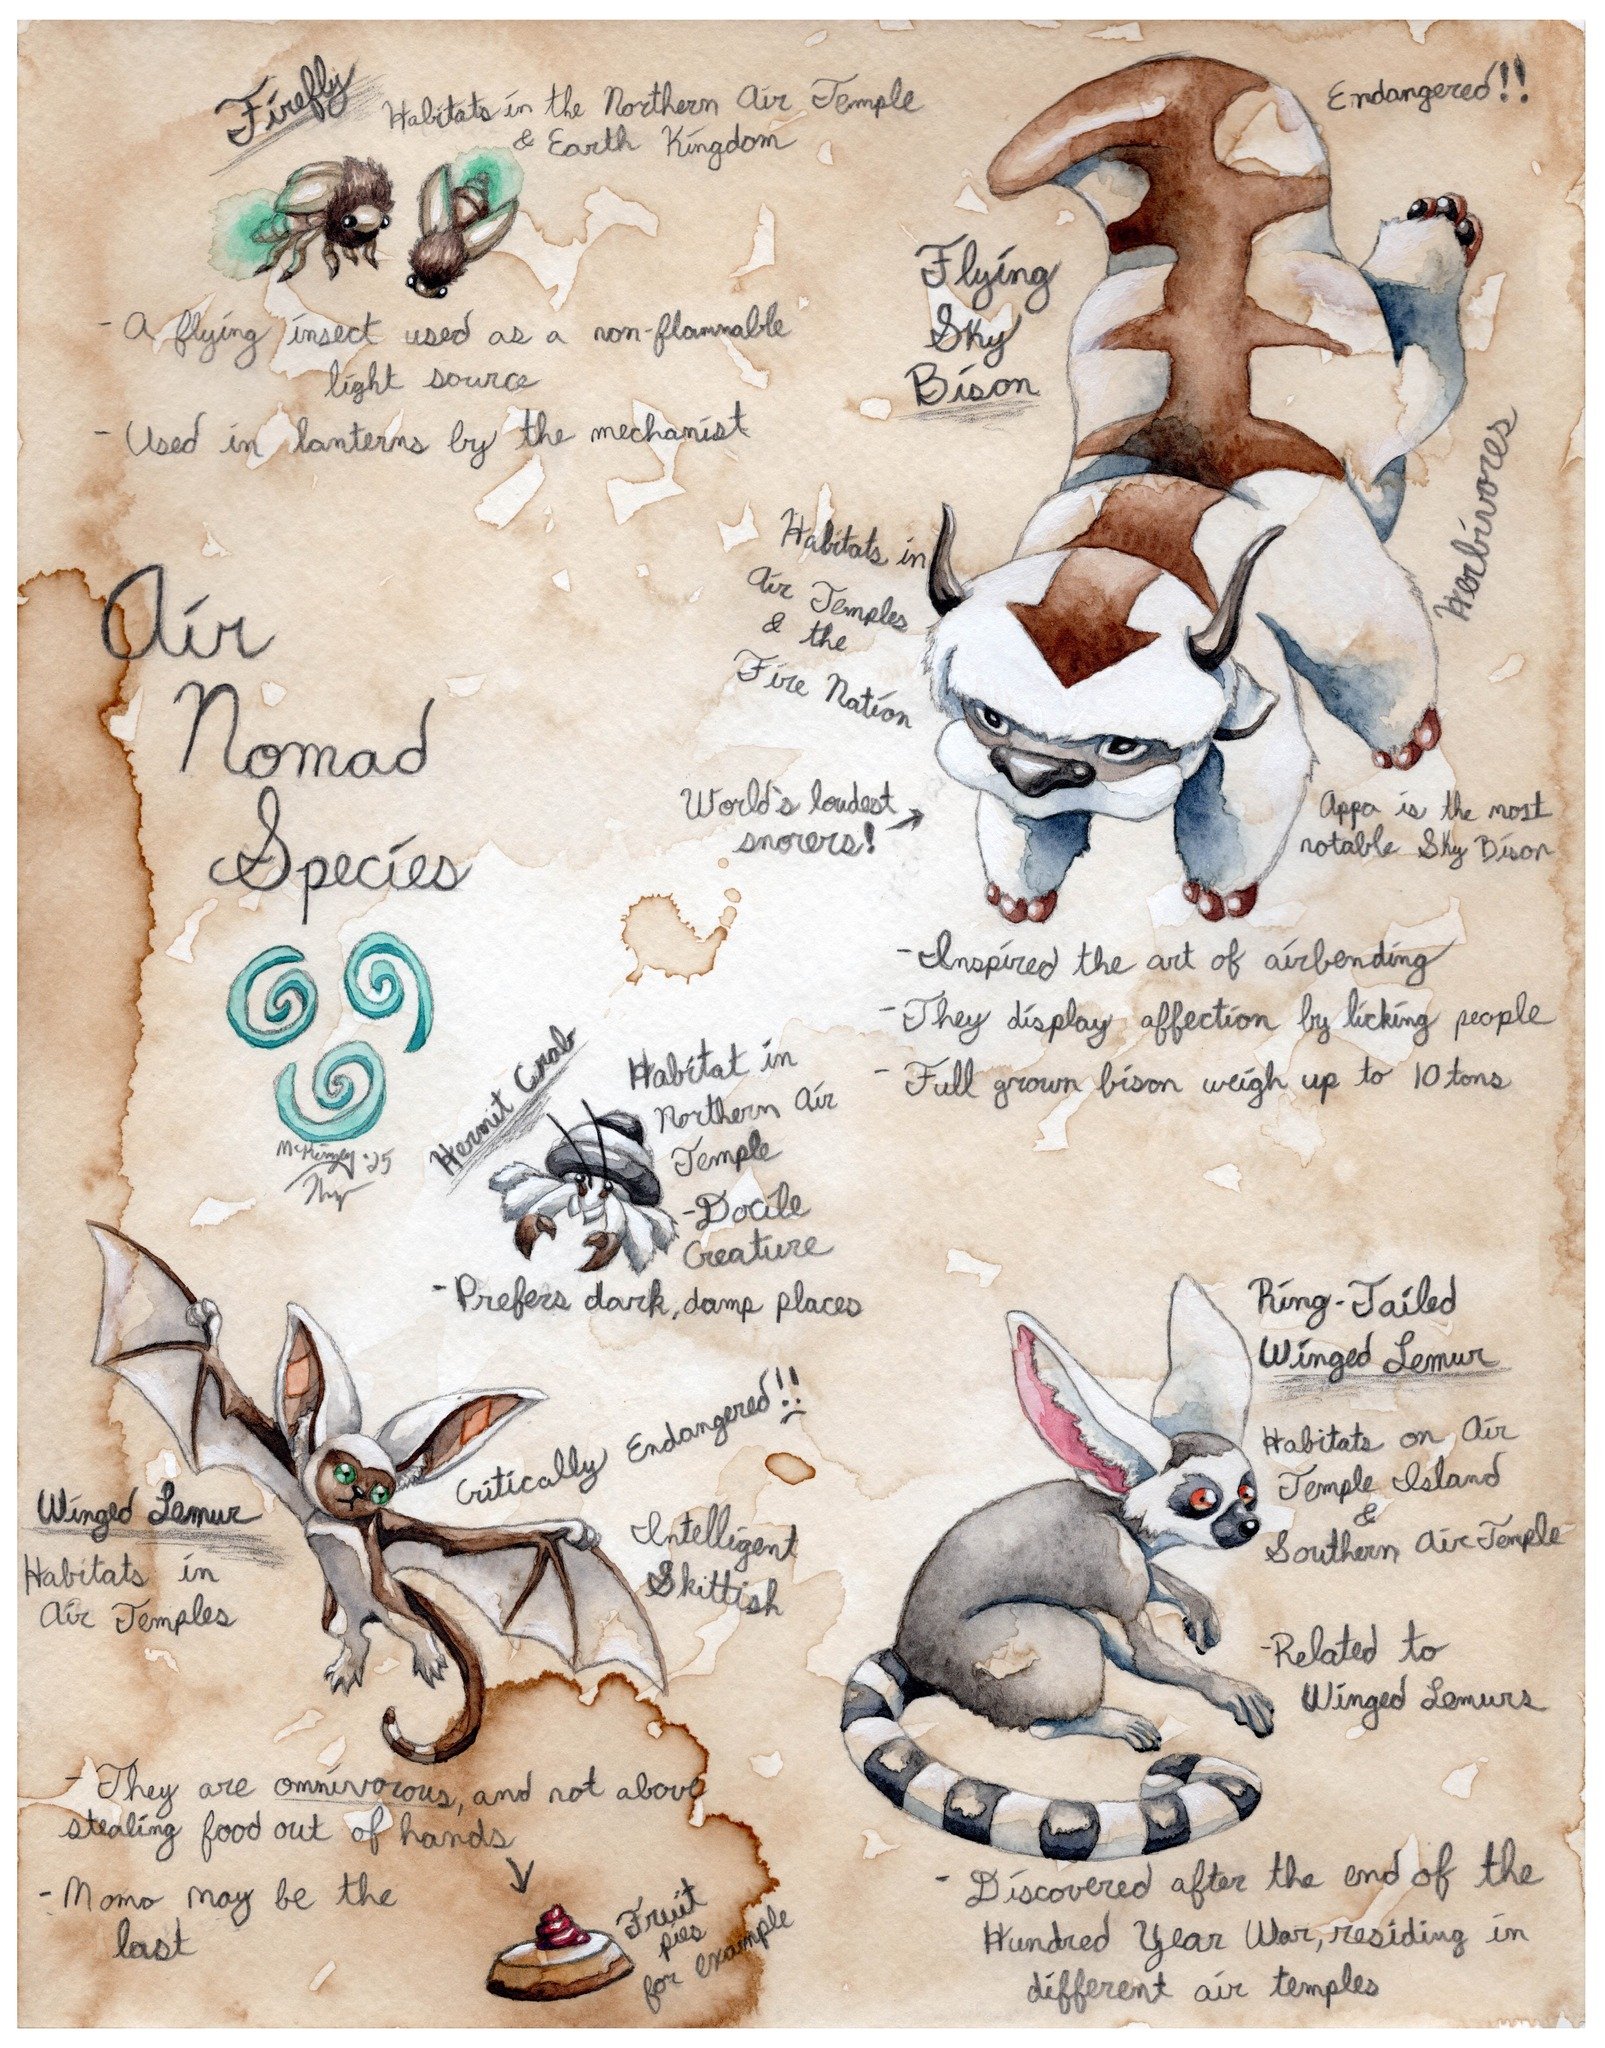 Firefly
Habitats in the Northern Air Temple
& Earth Kingdom
- A flying insect used as a non-flammable
light source
- Used in lanterns by the mechanist
Endangered!!
Flying
Sky
Bison
Herbivores
Habitats in
Air Temples
& the
Fire Nation
World's loudest
snorers!
Appa is the most
notable Sky Bison
- Inspired the art of airbending
- They display affection by licking people
- Full grown bison weigh up to 10 tons
Air
Nomad
Species
McKinzey '25
Hermit Crab
Habitat in
Northern Air
Temple
- Docile
Creature
- Prefers dark, damp places
Winged Lemur
Habitats in
Air Temples
Critically Endangered!!
Intelligent
Skittish
- They are omnivorous, and not above
stealing food out of hands
- Momo may be the
last
Fruit
pies
for example
Ring-Tailed
Winged Lemur
Habitats on Air
Temple Island
&
Southern Air Temple
- Related to
Winged Lemurs
- Discovered after the end of the
Hundred Year War, residing in
different air temples